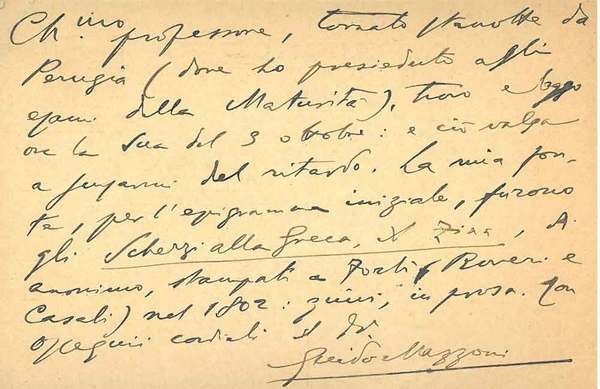 Ch.mo professore, tornato stanotte da
Perugia (dove ho presieduto agli
esami della Maturità), trovo e leggo
ora la Sua del 3 ottobre: e ciò valga
a scusarmi del ritardo. La mia fon-
te, per l'epigramma iniziale, furono
gli Scherzi alla Greca, di
anonimo, stampati a Forlì (Roveri e
Casali) nel 1802: in prosa. Con
ossequii cordiali il
Guido Mazzoni